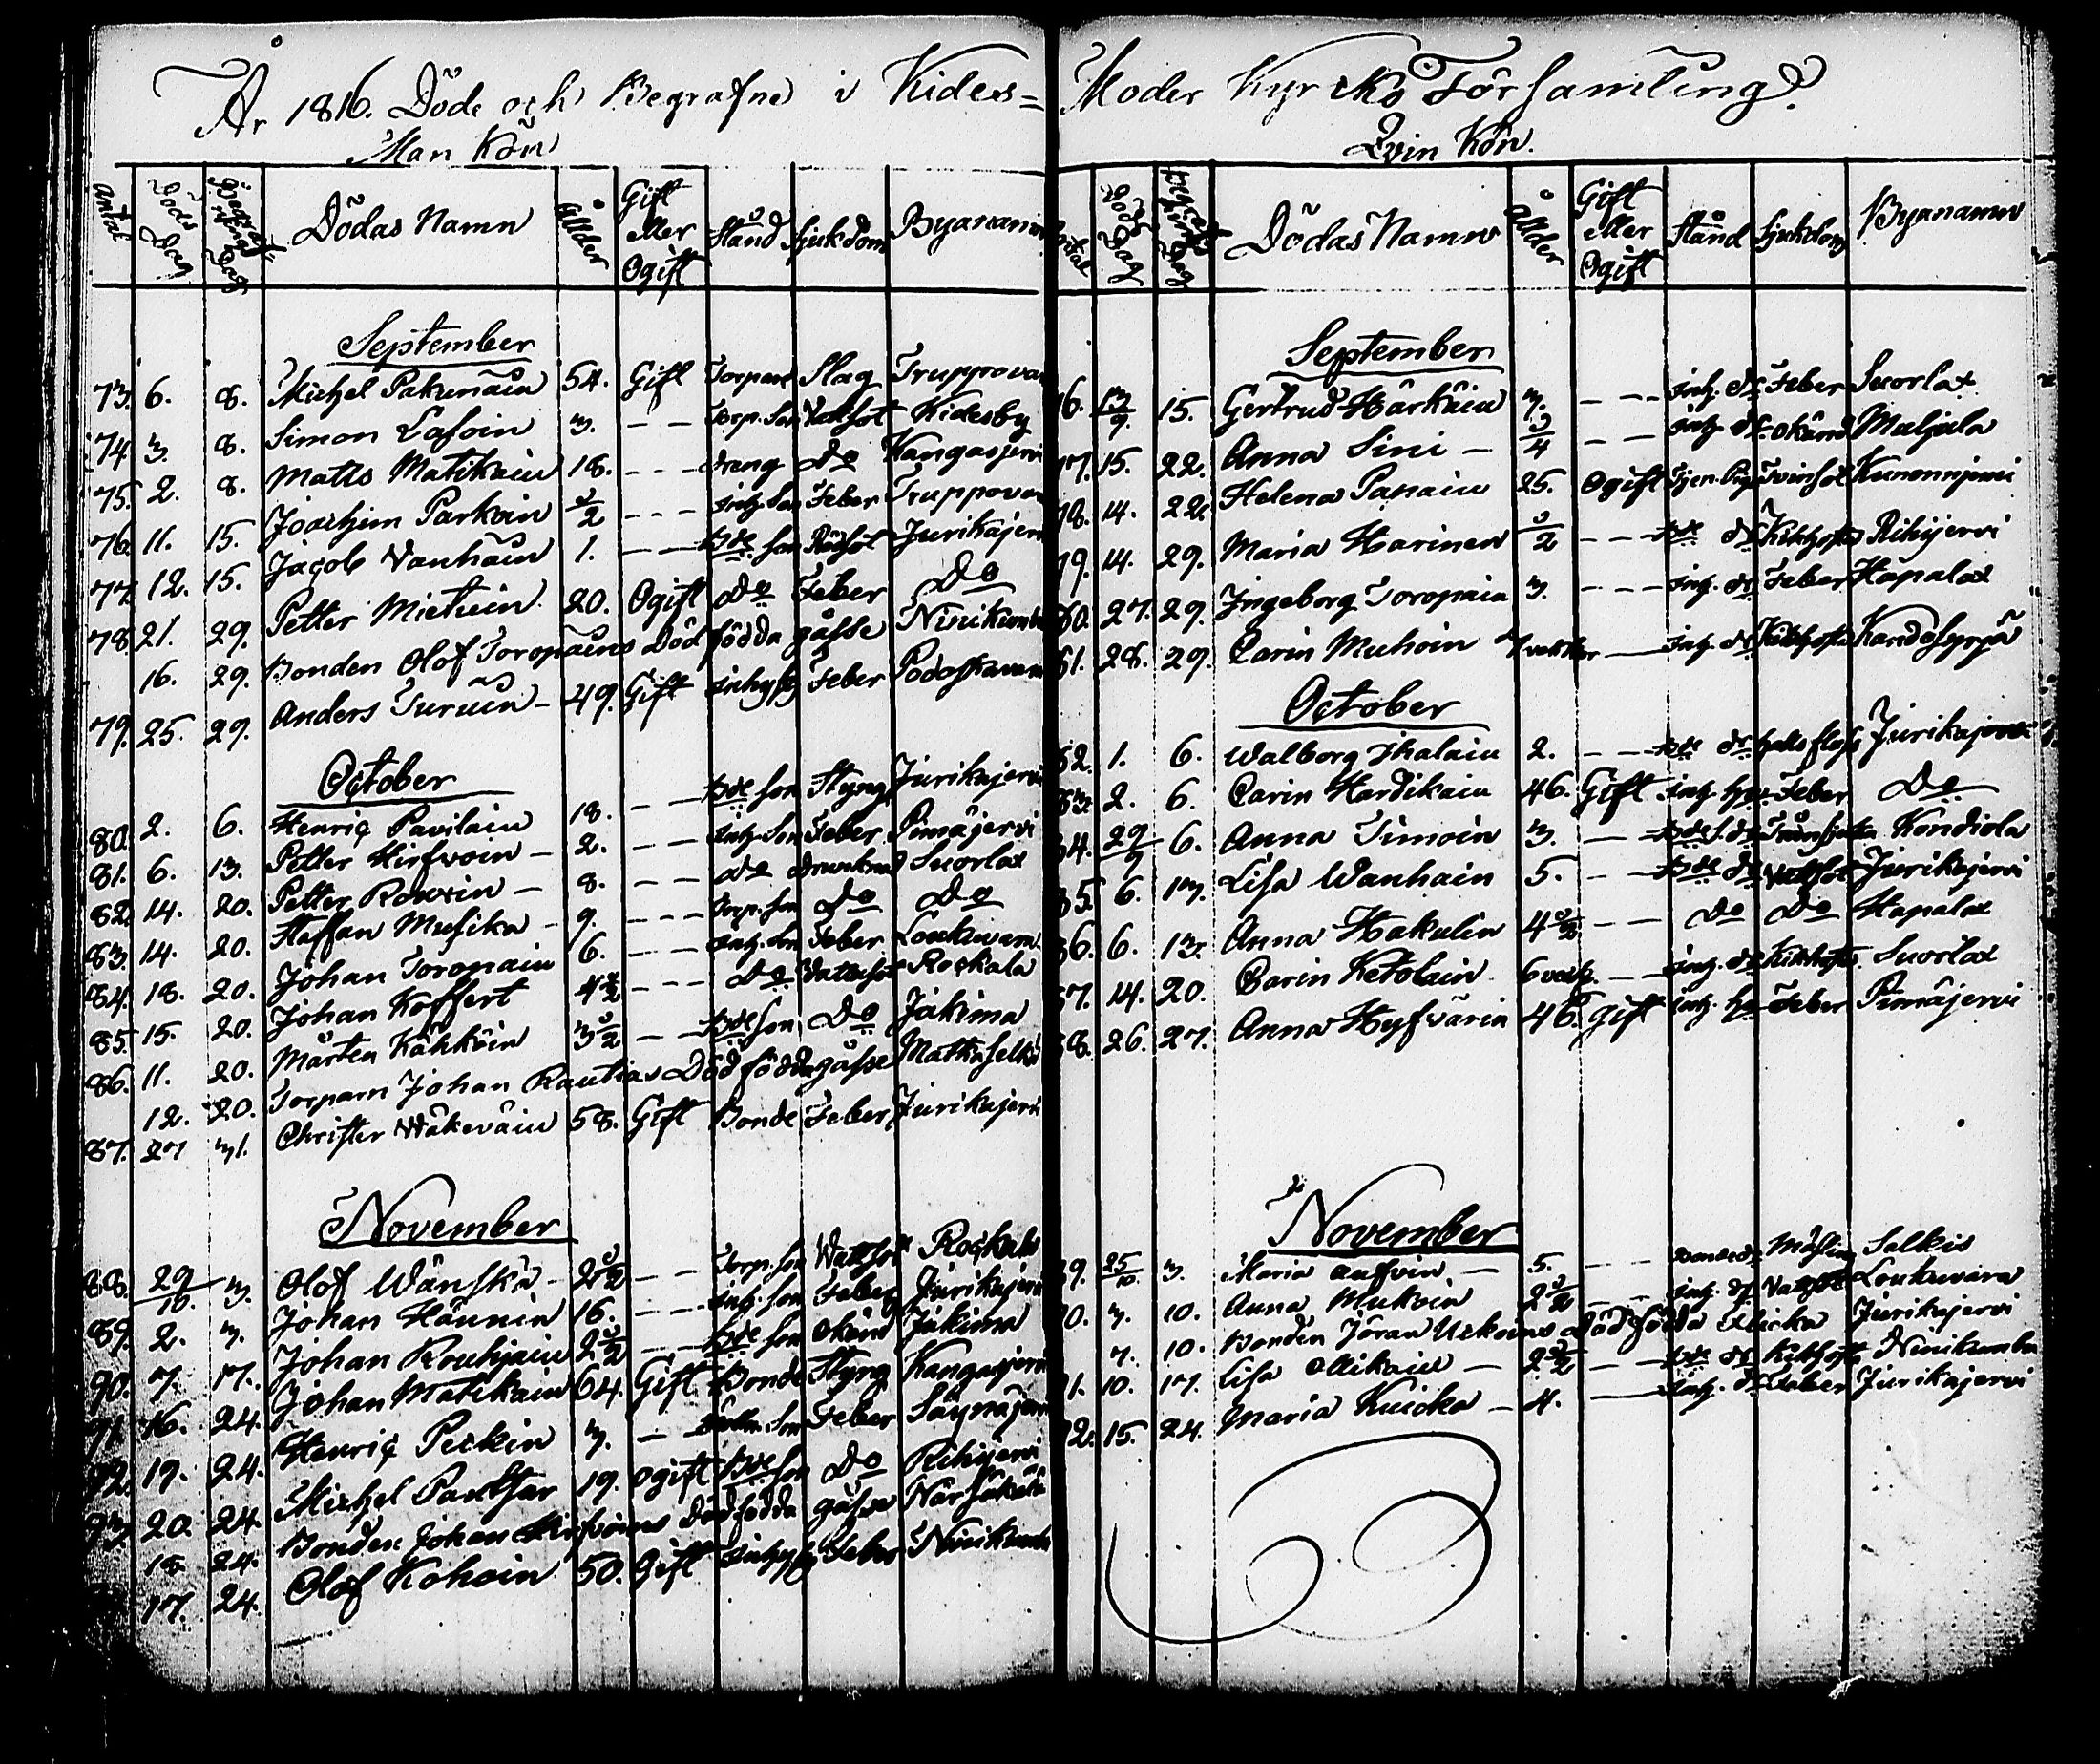 År 1816. Döde och Begrafne i Kides=
Man Kön
Antal Döds Dag Begrafnings Dag Dödas Namn Ålder Gift eller Ogift Stånd Sjukdom Byanamn
September
73. 6. 8. Michel Pakunain 54. Gift Torpare Slag Truppovar
74. 3. 8. Simon Lasoin 3. - - Torp. Son Vatsot Kidesby
75. 2. 8. Matts Matikain 18. - - - dreng Do Kangasjervi
76. 11. 15. Joachim Parkoin ½ - - - Inh. Son Feber Truppovar
77. 12. 15. Jacob Vanhain 1. - - Bde son Rödsot Jurikajer
78. 21. 29. Petter Mietuin 20. Ogift Do Feber Do
16. 29. Bonden Olof Toropains Död födda gåsse Ninikumbu
79. 25. 29. Anders Turuin - 49. Gift Inhysg Feber
October
80. 2. 6. Henric Pavilain 18. - - Bde son Styng Jurikajervi
81. 6. 13. Petter Hirfvoin - 2. - - Inh. Son Feber Pimäjervi
82. 14. 20. Petter - 8. - - Do Suorlax
83. 14. 20. Staffan Musika - 9. - - - Torp. son Do Do
84. 18. 20. Johan Toropain 6. - - Inh. Son Feber Loukuvara
85. 15. 20. Johan Koffert 4½ - - - Do Vattusot Rockala
86. 11. 20. Mårten Kähköin 3½ - - Bde son Do Jakima
12. 20. Torparn Johan Rautias Död födda gåsse Matkaselkä
87. 27 31. Christer Wäkeväin 58. Gift Bonde Feber Jurikajervi
November
88. 29/10. 3. Olof Wänskä - 2½ - - Torp. Son Wattsot Rockala
89. 2. 3. Johan Hännin 16. - - Inh. Son Feber Jurikajervi
90. 7. 17. Johan Rouhjain 2½ - - Bde son okänd Jakima
91. 16. 24. Johan Matikain 64. Gift Bonde Styng Kangasjervi
92. 19. 24. Henric Peckin 3. - - Son Feber Säynäjer
93. 20. 24. Michel Parthar 19. ogift Bde son Do Rihijervi
18 24. Bonden Johan Hirfvoins Död födda gåsse Närsäkälä
17. 24. Olof Kohoin 50. Gift Inhysg Feber Ninikumbu
Moder Kyrko Församling
Qvin Kön.
Antal Döds Dag Begrafnings Dag Dödas Namn Ålder Gift eller Ogift Stånd Sjukdom Byanamn
September
76. 13/9. 15. Gertrud Härkäin 3. - - - Inh. dr Feber Suorlax
77. 15. 22. Anna Sini - ¾ - - Inh. dr. okänd Muljula
78. 14. 22. Helena Papain 25. Ogift Tjen. Pig Tvinsot
79. 14. 29. Maria Harinen ½ - - - Bde dr Kikhosta Rihijervi
80. 27. 29. Ingeborg Toropain 3. - - - Inh. dr Feber Hapalax
81. 28. 29. Carin Muhoin 7 veckor - Inh. dr Kikhosta Kandosyrjä
October
82. 1. 6. Walborg Ikalain 2. - - Bde dr halsfluss Jurikajervi
83. 2. 6. Carin Hardikain 46. Gift Inh. hu Feber Do
84. 29/9 6. Anna Timoin 3. - Bde s. dr Kondiola
85. 6. 13. Lisa Wanhain 5. - Bde dr Vattsot Jurikajervi
86. 6. 13. Anna Hakulin 4½ - - Do Do Hapalax
87. 14. 20. Carin Ketolain 6 veck. - Inh. dr Kikhosta Suorlax
88. 26. 27. Anna Hyfvärin 46. gift Inh. hu Feber Pimäjervi
November
89. 25/10 3. Maria Auffvin. - 5. - - - Bonde dr Mässling Selkis
90. 3. 10. Anna Mukoin 2½ - - Inh. dr Vattsot Loukuvara
7. 10. Bonden Jöran Urkoins död födda Flicka Jurikajervi
91. 10. 17. Lisa Ollikain - 2½ - - Bde dr Kikhosta Ninikumbu
92. 15. 24. Maria Kuicka - 4. - Inh. dr Feber Jurikajervi